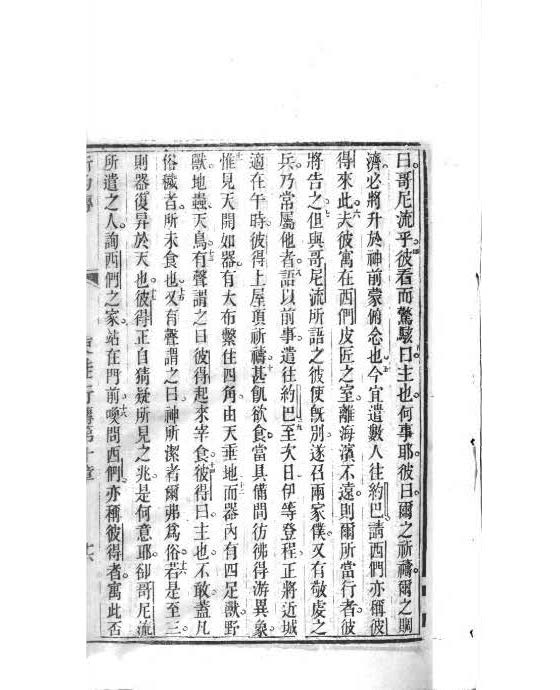 曰哥尼流乎彼看而驚駭曰主也何事耶彼曰爾之祈禱爾之賙
濟必將升於神前蒙俯念也五今宜遣數人往約巴請西們亦稱彼
得來此六夫彼寓在西們皮匠之室離海濱不遠則爾所當行者彼
將告之七但與哥尼流所語之彼使旣別遂召兩家僕又有敬虔之
兵乃常屬他者八語以前事遣往約巴九至次日伊等登程正將近城
適在午時彼得上屋頂祈禱十甚飢欲食當具備間彷彿得游異象
十一惟見天開如器有大布繫住四角由天垂地十二而器內有四足獸野
獸地蟲天鳥十三有聲謂之曰彼得起來宰食十四彼得曰主也不敢蓋凡
俗穢者所未食也十五又有聲謂之曰神所潔者爾弗爲俗十六若是至三
則器復昇於天也十七彼得正自猜疑所見之兆是何意耶卻哥尼流
所遣之人詢西們之家站在門前十八喚問西們亦稱彼得者寓此否
行傳第十章